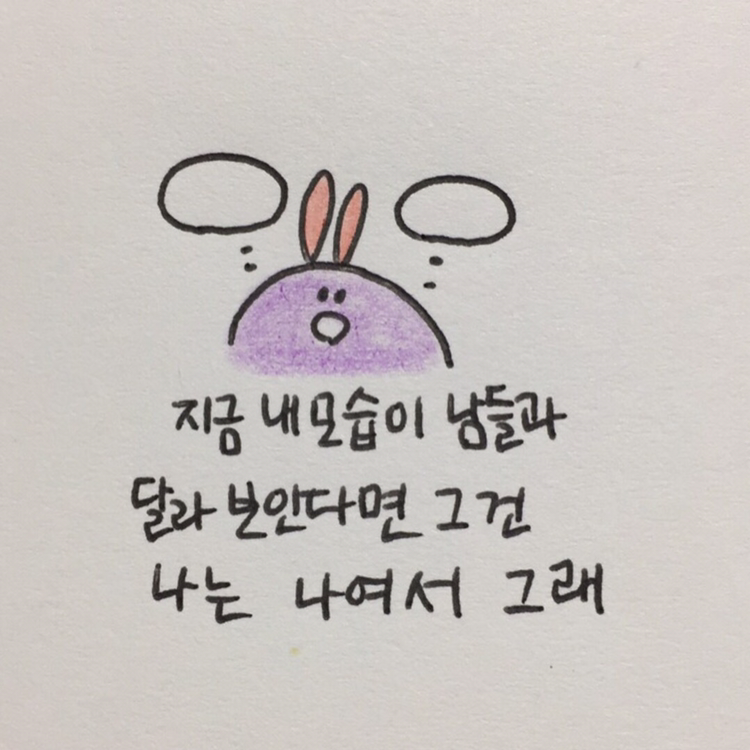 지금 내 모습이 남들과
달라 보인다면 그건
나는 나여서 그래